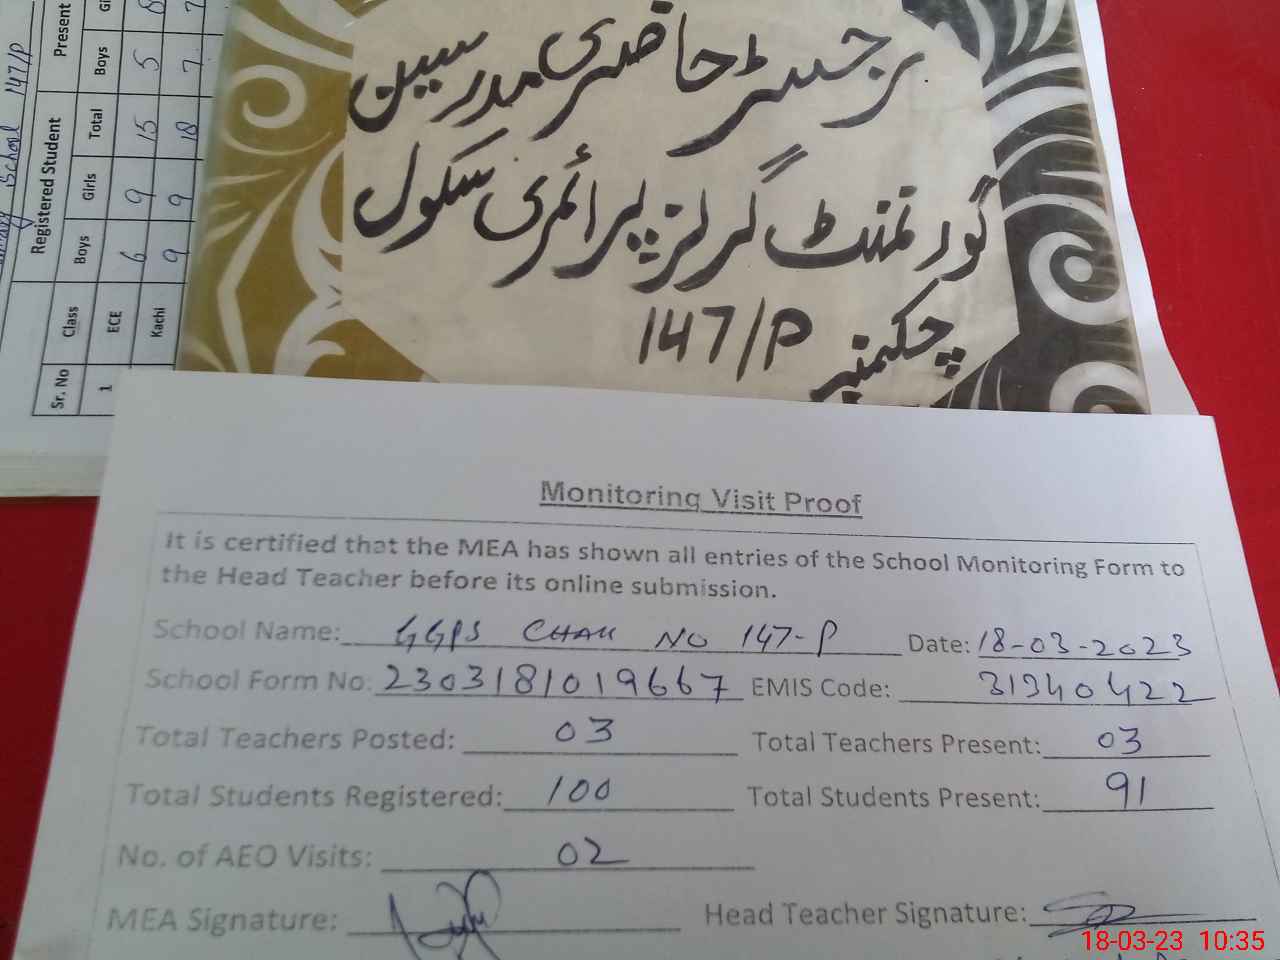 رجسٹر حاضری مدرسین
گورنمنٹ گرلز پرائمری سکول
چکنمبر 147/P
School 147/P
Registered Student Present
Sr. No Class Boys Girls Total Boys
1 ECE 6 9 15 5 8
Kachi 9 9 18 7 7
Monitoring Visit Proof
It is certified that the MEA has shown all entries of the School Monitoring Form to
the Head Teacher before its online submission.
School Name: GGPS CHAK NO 147-P Date: 18-03-2023
School Form No: 2303181019667 EMIS Code: 31340422
Total Teachers Posted: 03 Total Teachers Present: 03
Total Students Registered: 100 Total Students Present: 91
No. of AEO Visits: 02
MEA Signature: Head Teacher Signature:
18-03-23 10:35